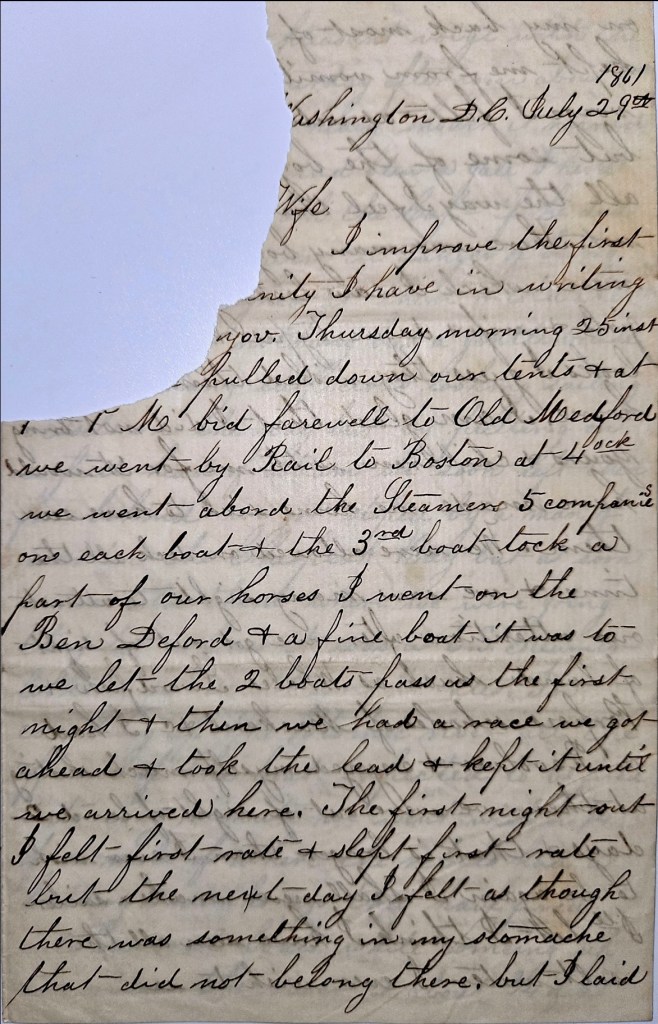 1861
ashington D.C. July 29th
Wife
I improve the first
nity I have in writing
you. Thursday morning 25 inst
pulled down our tents & at
1 P M bid farewell to Old Medford
we went by Rail to Boston at 4 ock
we went abord the Steamers 5 companies
on each boat & the 3rd boat tock a
part of our horses I went on the
Ben Deford & a fine boat it was to
we let the 2 boats pass us the first
night & then we had a race we got
ahead & took the lead & kept it until
we arrived here. The first night out
I felt first rate & slept first rate
but the next day I felt as though
there was something in my stomache
that did not belong there. but I laid